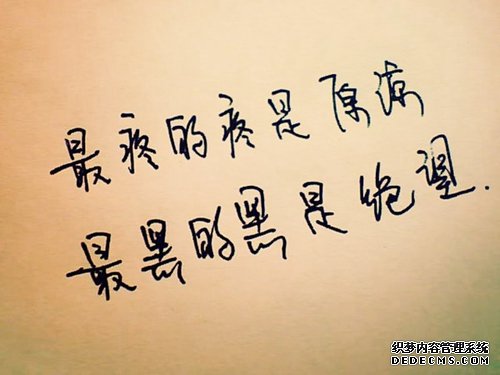 最疼的疼是原谅
最黑的黑是绝望.
织梦内容管理系统
DEDECMS.COM